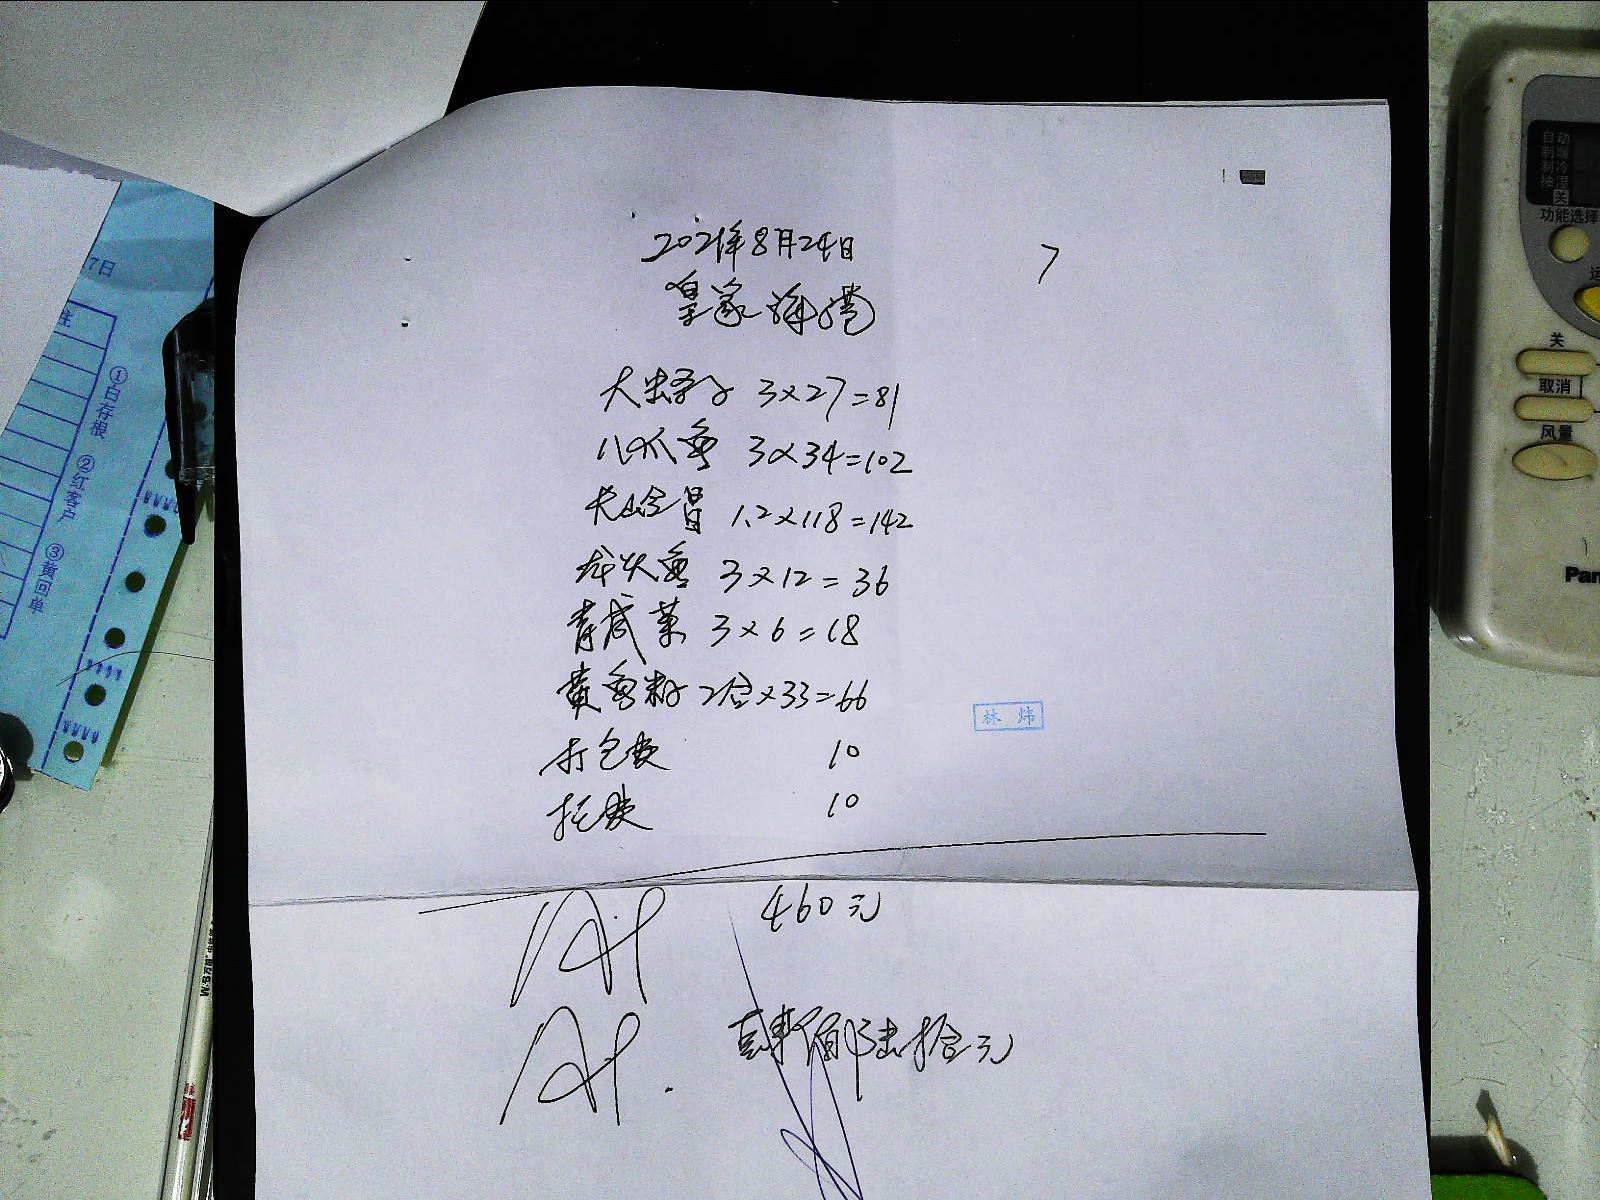 2021年8月24日
7
皇家海港
大蛏子 3×27=81
八爪鱼 3×34=102
1.2×118=142
龙头鱼 3×12=36
3×6=18
黄鱼籽 2合×33=66
打包费 10
托费 10
460元
肆佰陆拾元
林 炜
17日
注
①白存根
②红客户
③黄回单
自动
制暖
制冷
抽湿
关
功能选择
运
关
取消
风量
Pan